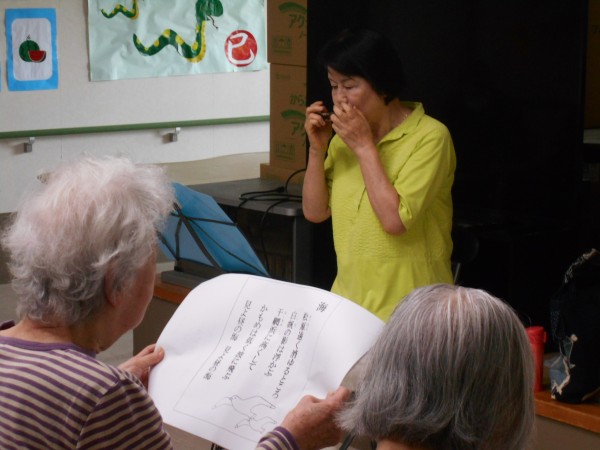 海
松原遠く消ゆるところ
白帆の影は浮かぶ
干網浜に高くして
かもめは低く波に飛ぶ
見よ昼の海 見よ昼の海
巳